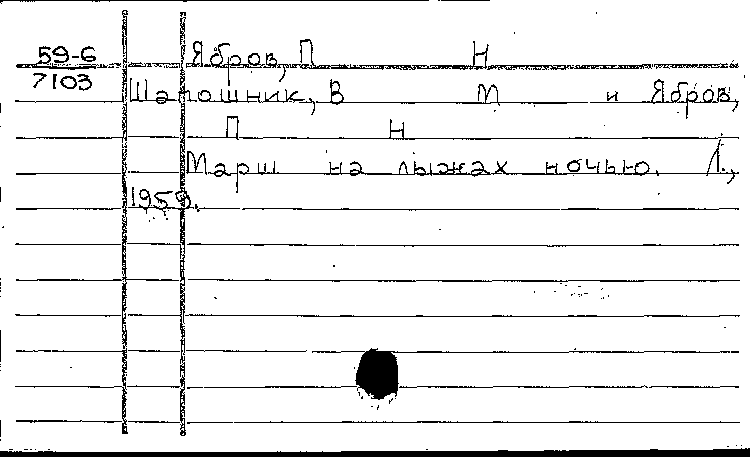 59-6
7103
Ябров, П Н
Шапошник, В М и Ябров,
П Н
Марш на лыжах ночью. Л.,
1959.